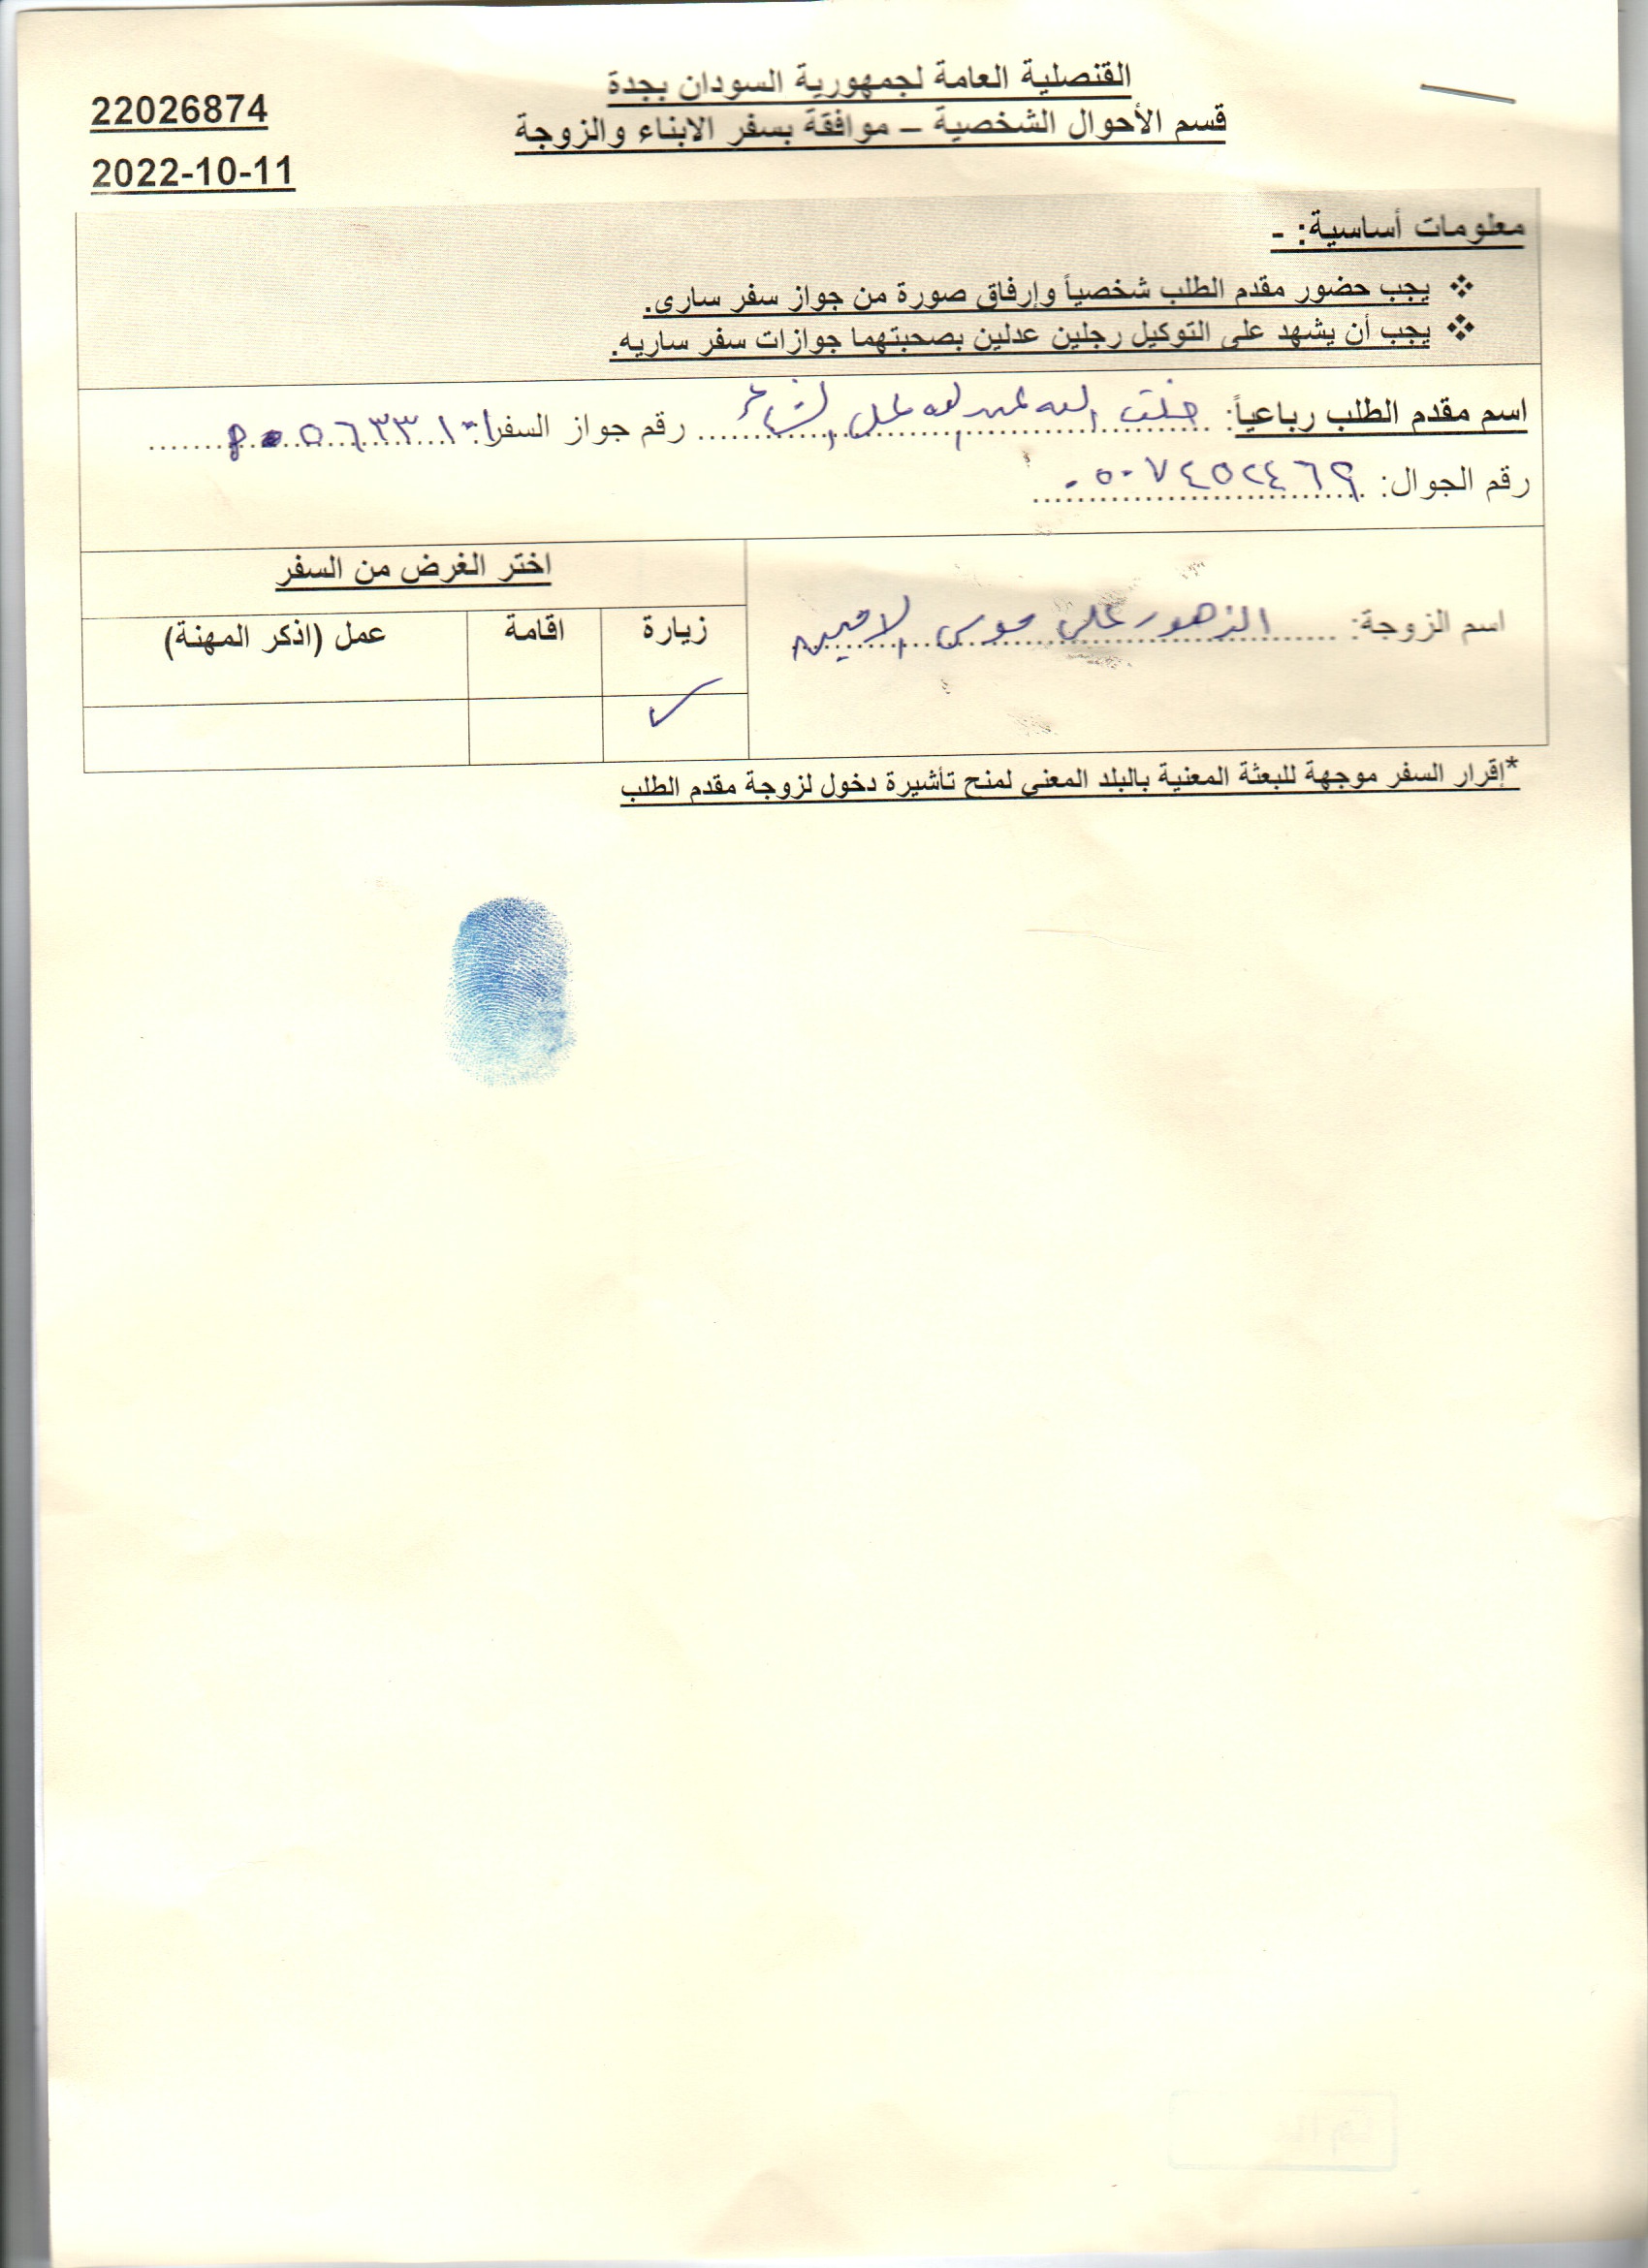 القنصلية العامة لجمهورية السودان بجدة
قسم الأحوال الشخصية – موافقة بسفر الابناء والزوجة
22026874
2022-10-11
معلومات أساسية: -
❖ يجب حضور مقدم الطلب شخصياً وإرفاق صورة من جواز سفر سارى.
❖ يجب أن يشهد على التوكيل رجلين عدلين بصحبتهما جوازات سفر ساريه.
اسم مقدم الطلب رباعياً: الله على رقم جواز السفر:
رقم الجوال: ٠٥٠٧٤٥٢٤٦٩
اسم الزوجة: الزهور على موسى الامين
اختر الغرض من السفر
زيارة اقامة عمل (اذكر المهنة)
✓
*إقرار السفر موجهة للبعثة المعنية بالبلد المعنى لمنح تأشيرة دخول لزوجة مقدم الطلب